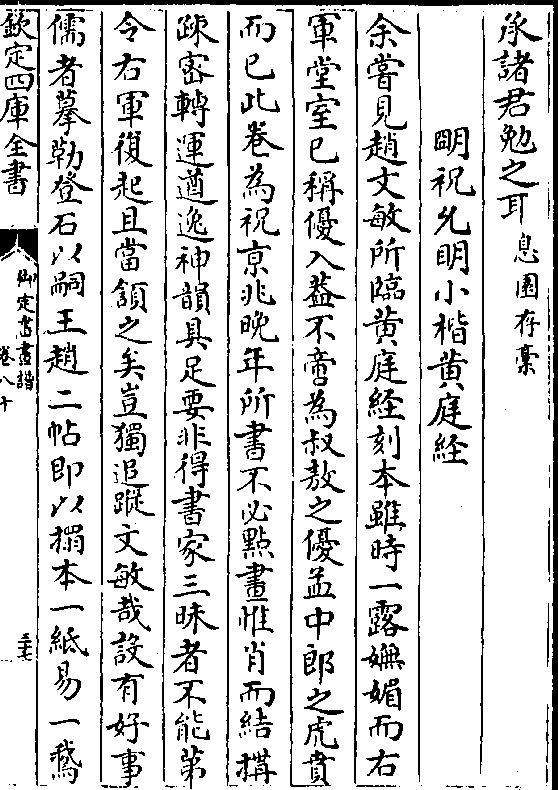 承諸君勉之耳息園存稾
明祝允明小楷黄庭經
余嘗見趙文敏所臨黄庭經刻本雖時一露嫵媚而右
軍堂室已稱優入葢不啻為叔敖之優孟中郎之虎賁
而已此卷為祝京兆晚年所書不必點畫惟肖而結搆
疎宻轉運遒逸神韻具足要非得書家三昧者不能第
令右軍復起且當頷之矣豈獨追蹤文敏哉設有好事
儒者摹勒登石以嗣王趙二帖即以搨本一紙易一鵞
欽定四庫全書
御定書畫譜
卷八十
三十七